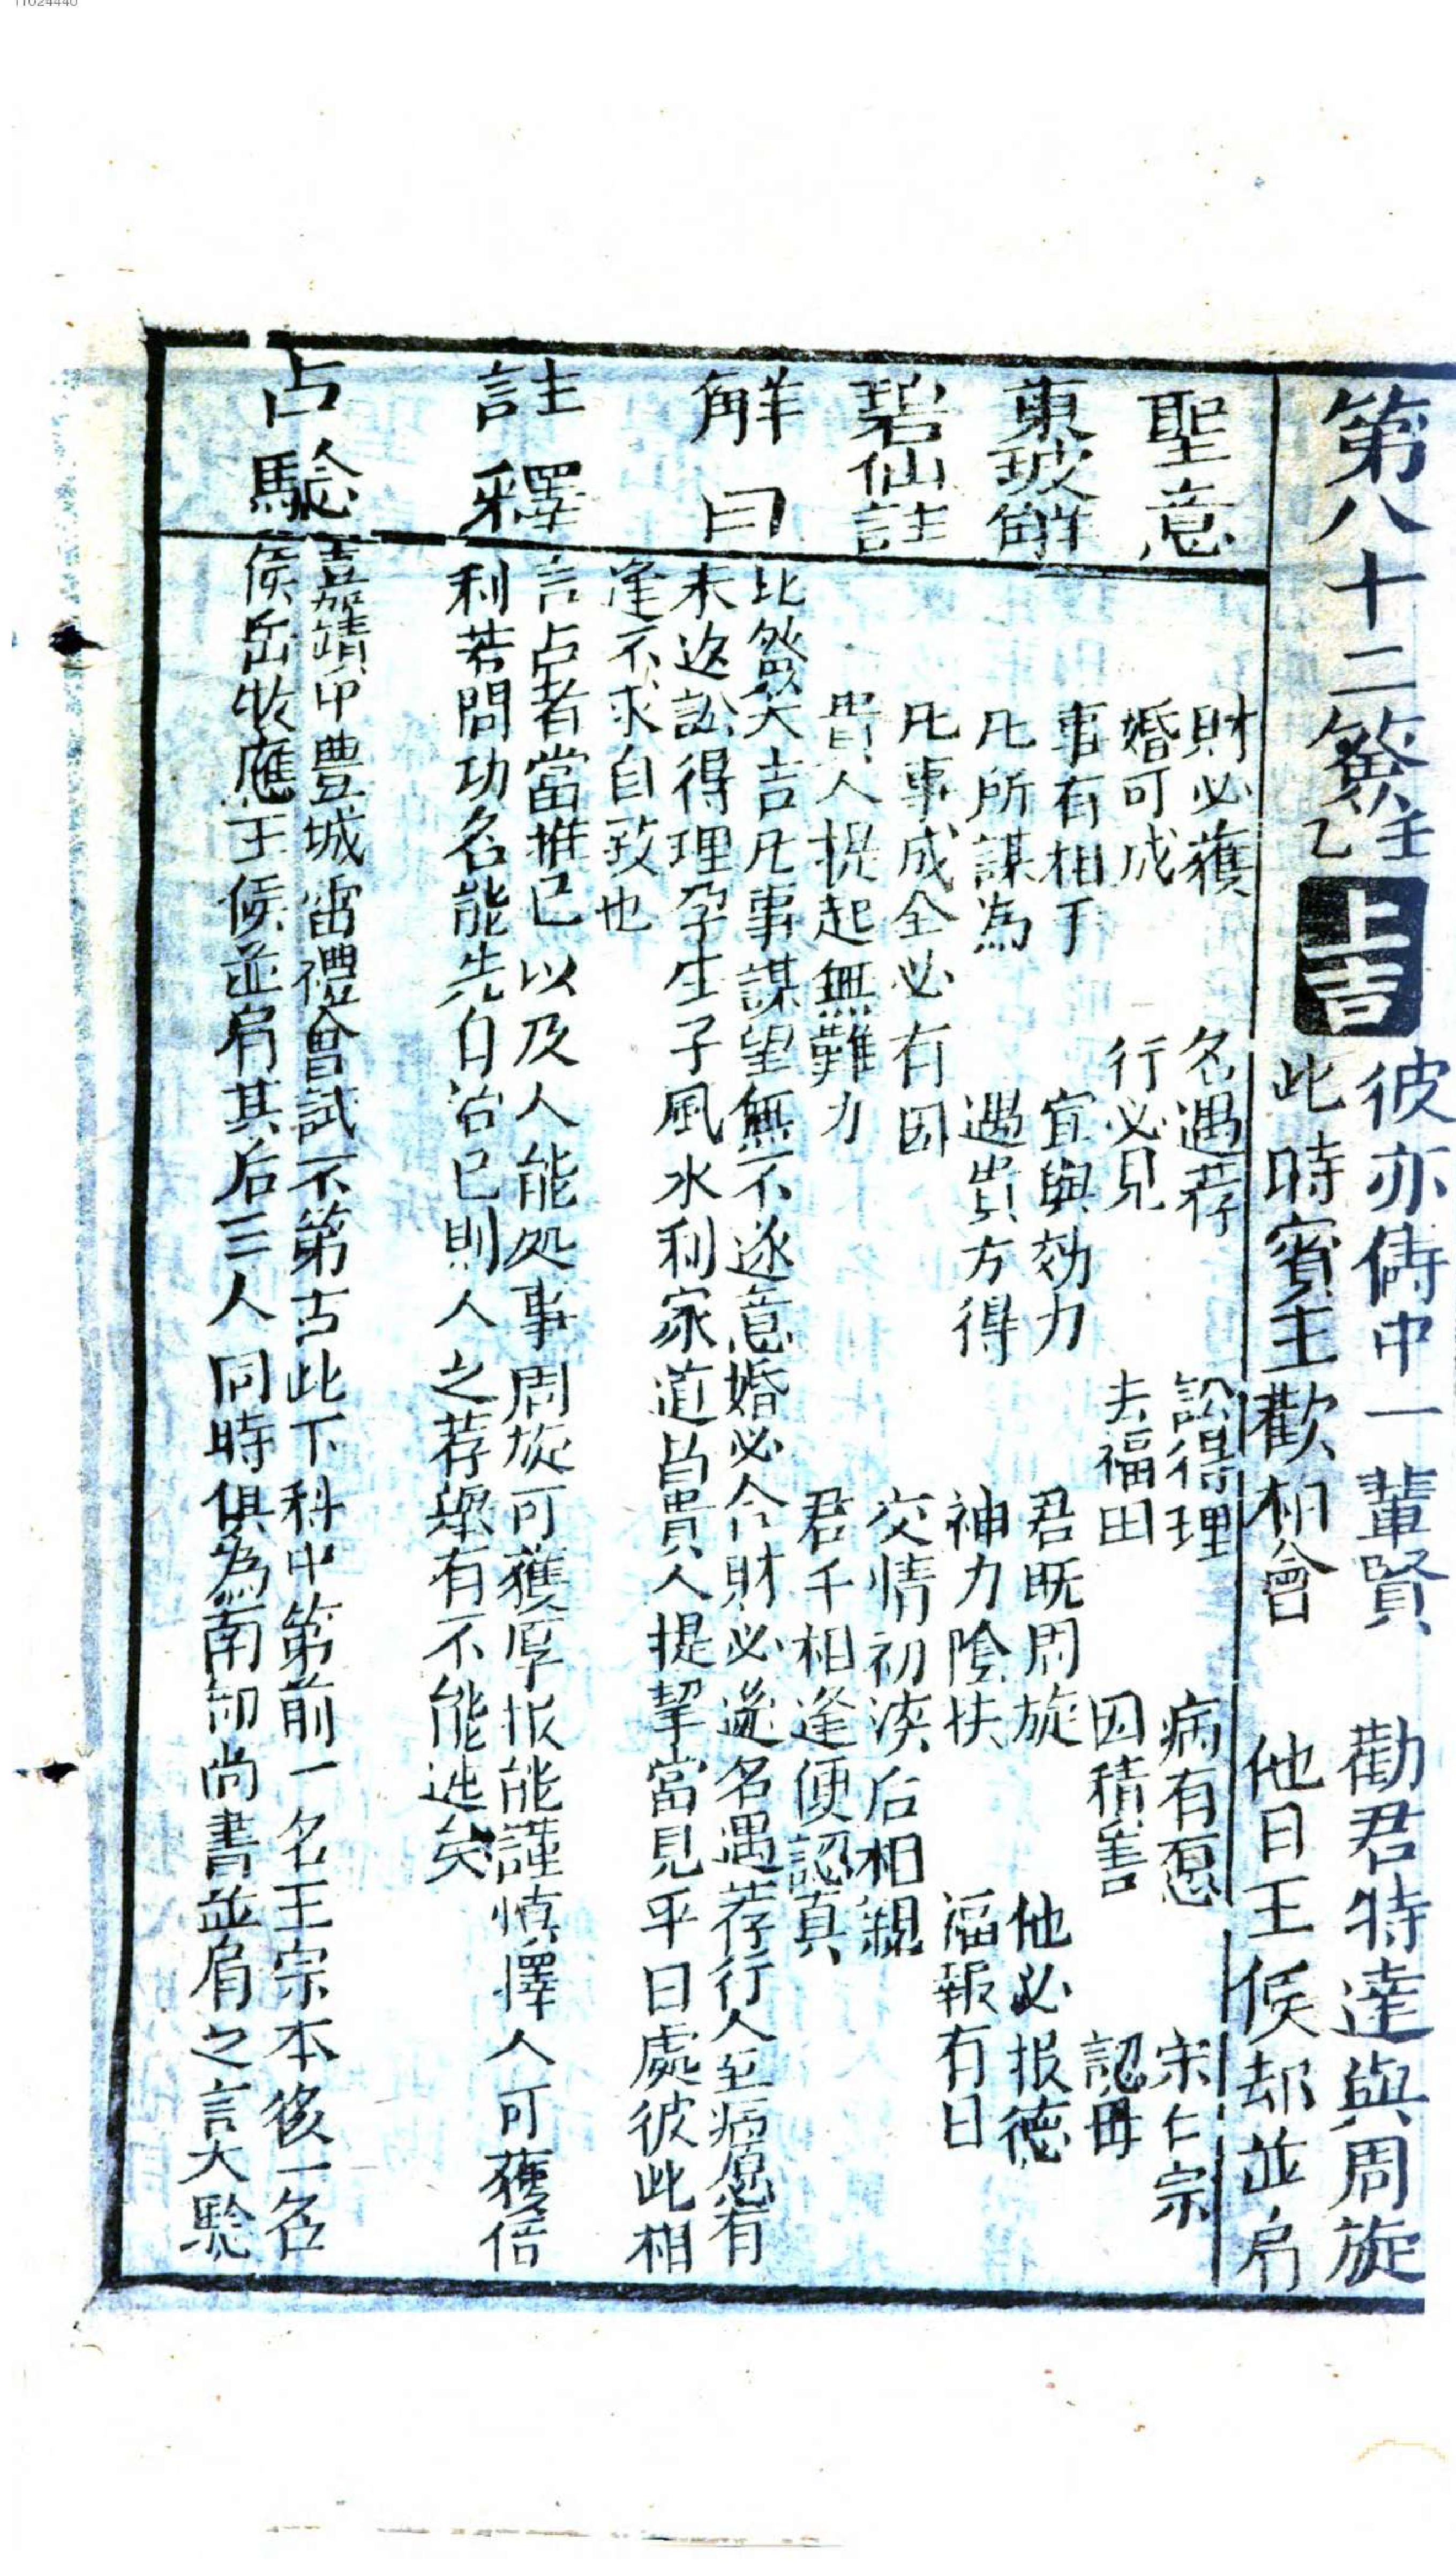 11024440
第八十二籤 壬乙 上吉
彼亦儔中一輩賢 勸君特達與周旋
此時賓主歡相會 他日王侯却並肩
聖意
財必獲 名遇荐 訟得理 病有愿 宋仁宗
婚可成 行必見 去福田 因積善 認母
東坡解
事有相于 宜與効力 君既周旋 他必报德
凡所謀為 遇貴方得 神力陰扶 福報有日
碧仙註
凡事成全必有因 交情初淡后相親
貴人提起無難力 君千相逢便認真
解曰
比籤大吉凡事謀望無不遂意婚必合財必遂名遇荐行人至病愿有
未迯訟得理孕生子風水利家道昌貴人提挈當見平日處彼此相
逢不求自致也
註釋
言占者當推己以及人能処事周旋可獲厚报能謹慎擇人可獲倍
利若問功名能先自治己則人之荐舉有不能迯矣
占驗
嘉靖中豊城雷禮會試不第古此下科中第前一名王宗本後一名
侯岳牧應王侯並肩其后三人同時俱為南部尚書並肩之言大驗